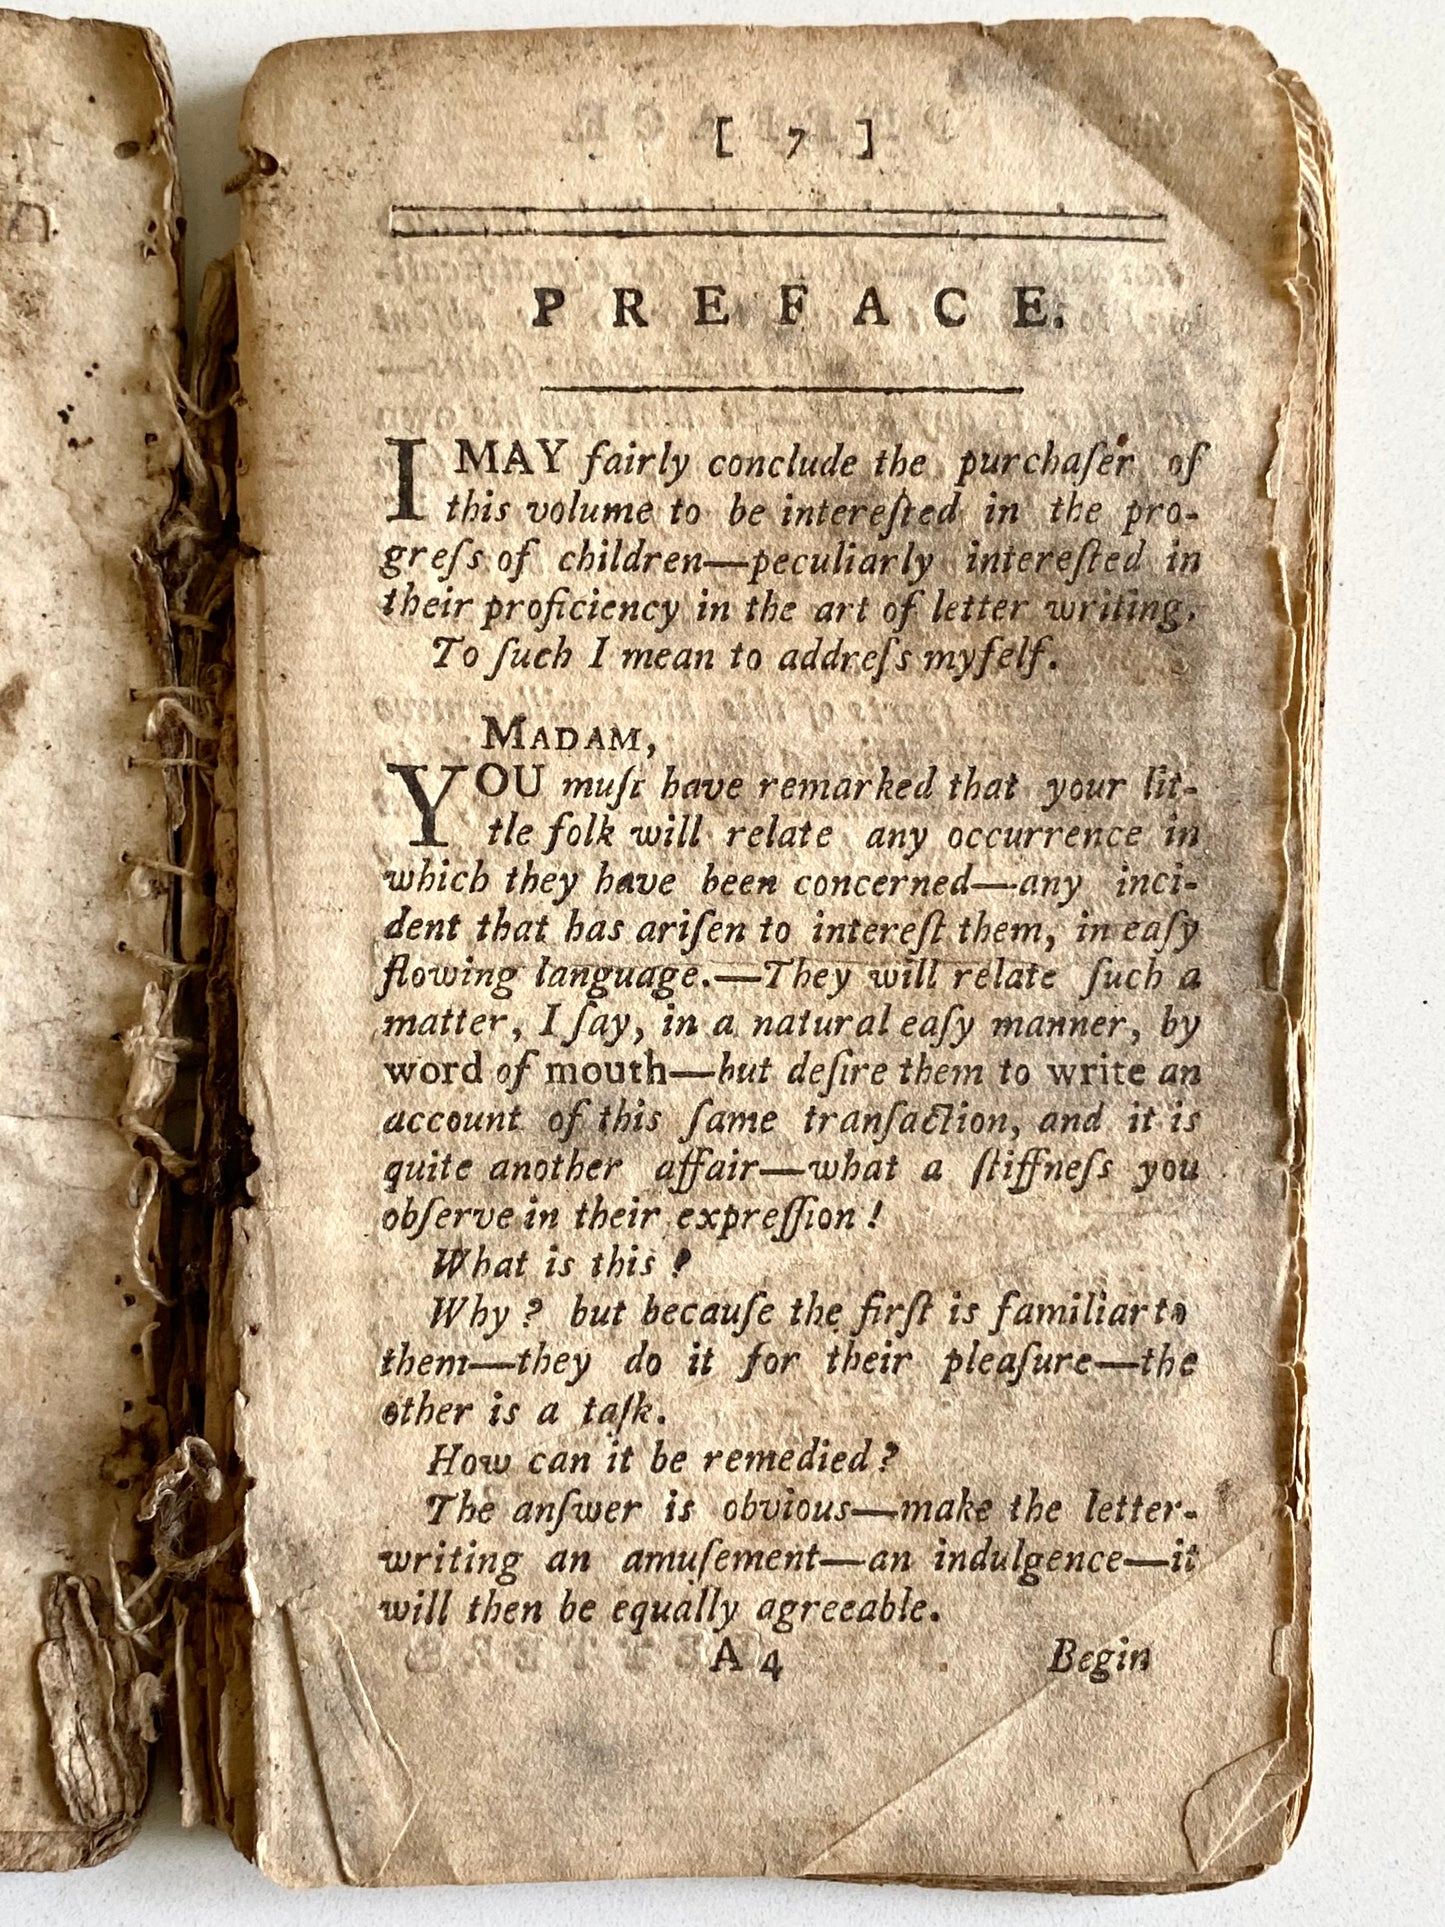 [ 7 ]
PREFACE.
I MAY fairly conclude the purchaſer of
this volume to be intereſted in the pro-
greſs of children—peculiarly intereſted in
their proficiency in the art of letter writing.
To ſuch I mean to addreſs myſelf.
MADAM,
YOU muſt have remarked that your lit-
tle folk will relate any occurrence in
which they have been concerned—any inci-
dent that has ariſen to intereſt them, in eaſy
flowing language.—They will relate ſuch a
matter, I ſay, in a natural eaſy manner, by
word of mouth—but deſire them to write an
account of this ſame tranſaction, and it is
quite another affair—what a ſtiffneſs you
obſerve in their expreſſion!
What is this?
Why? but becauſe the firſt is familiar to
them—they do it for their pleaſure—the
other is a taſk.
How can it be remedied?
The anſwer is obvious—make the letter-
writing an amuſement—an indulgence—it
will then be equally agreeable.
A 4 Begin